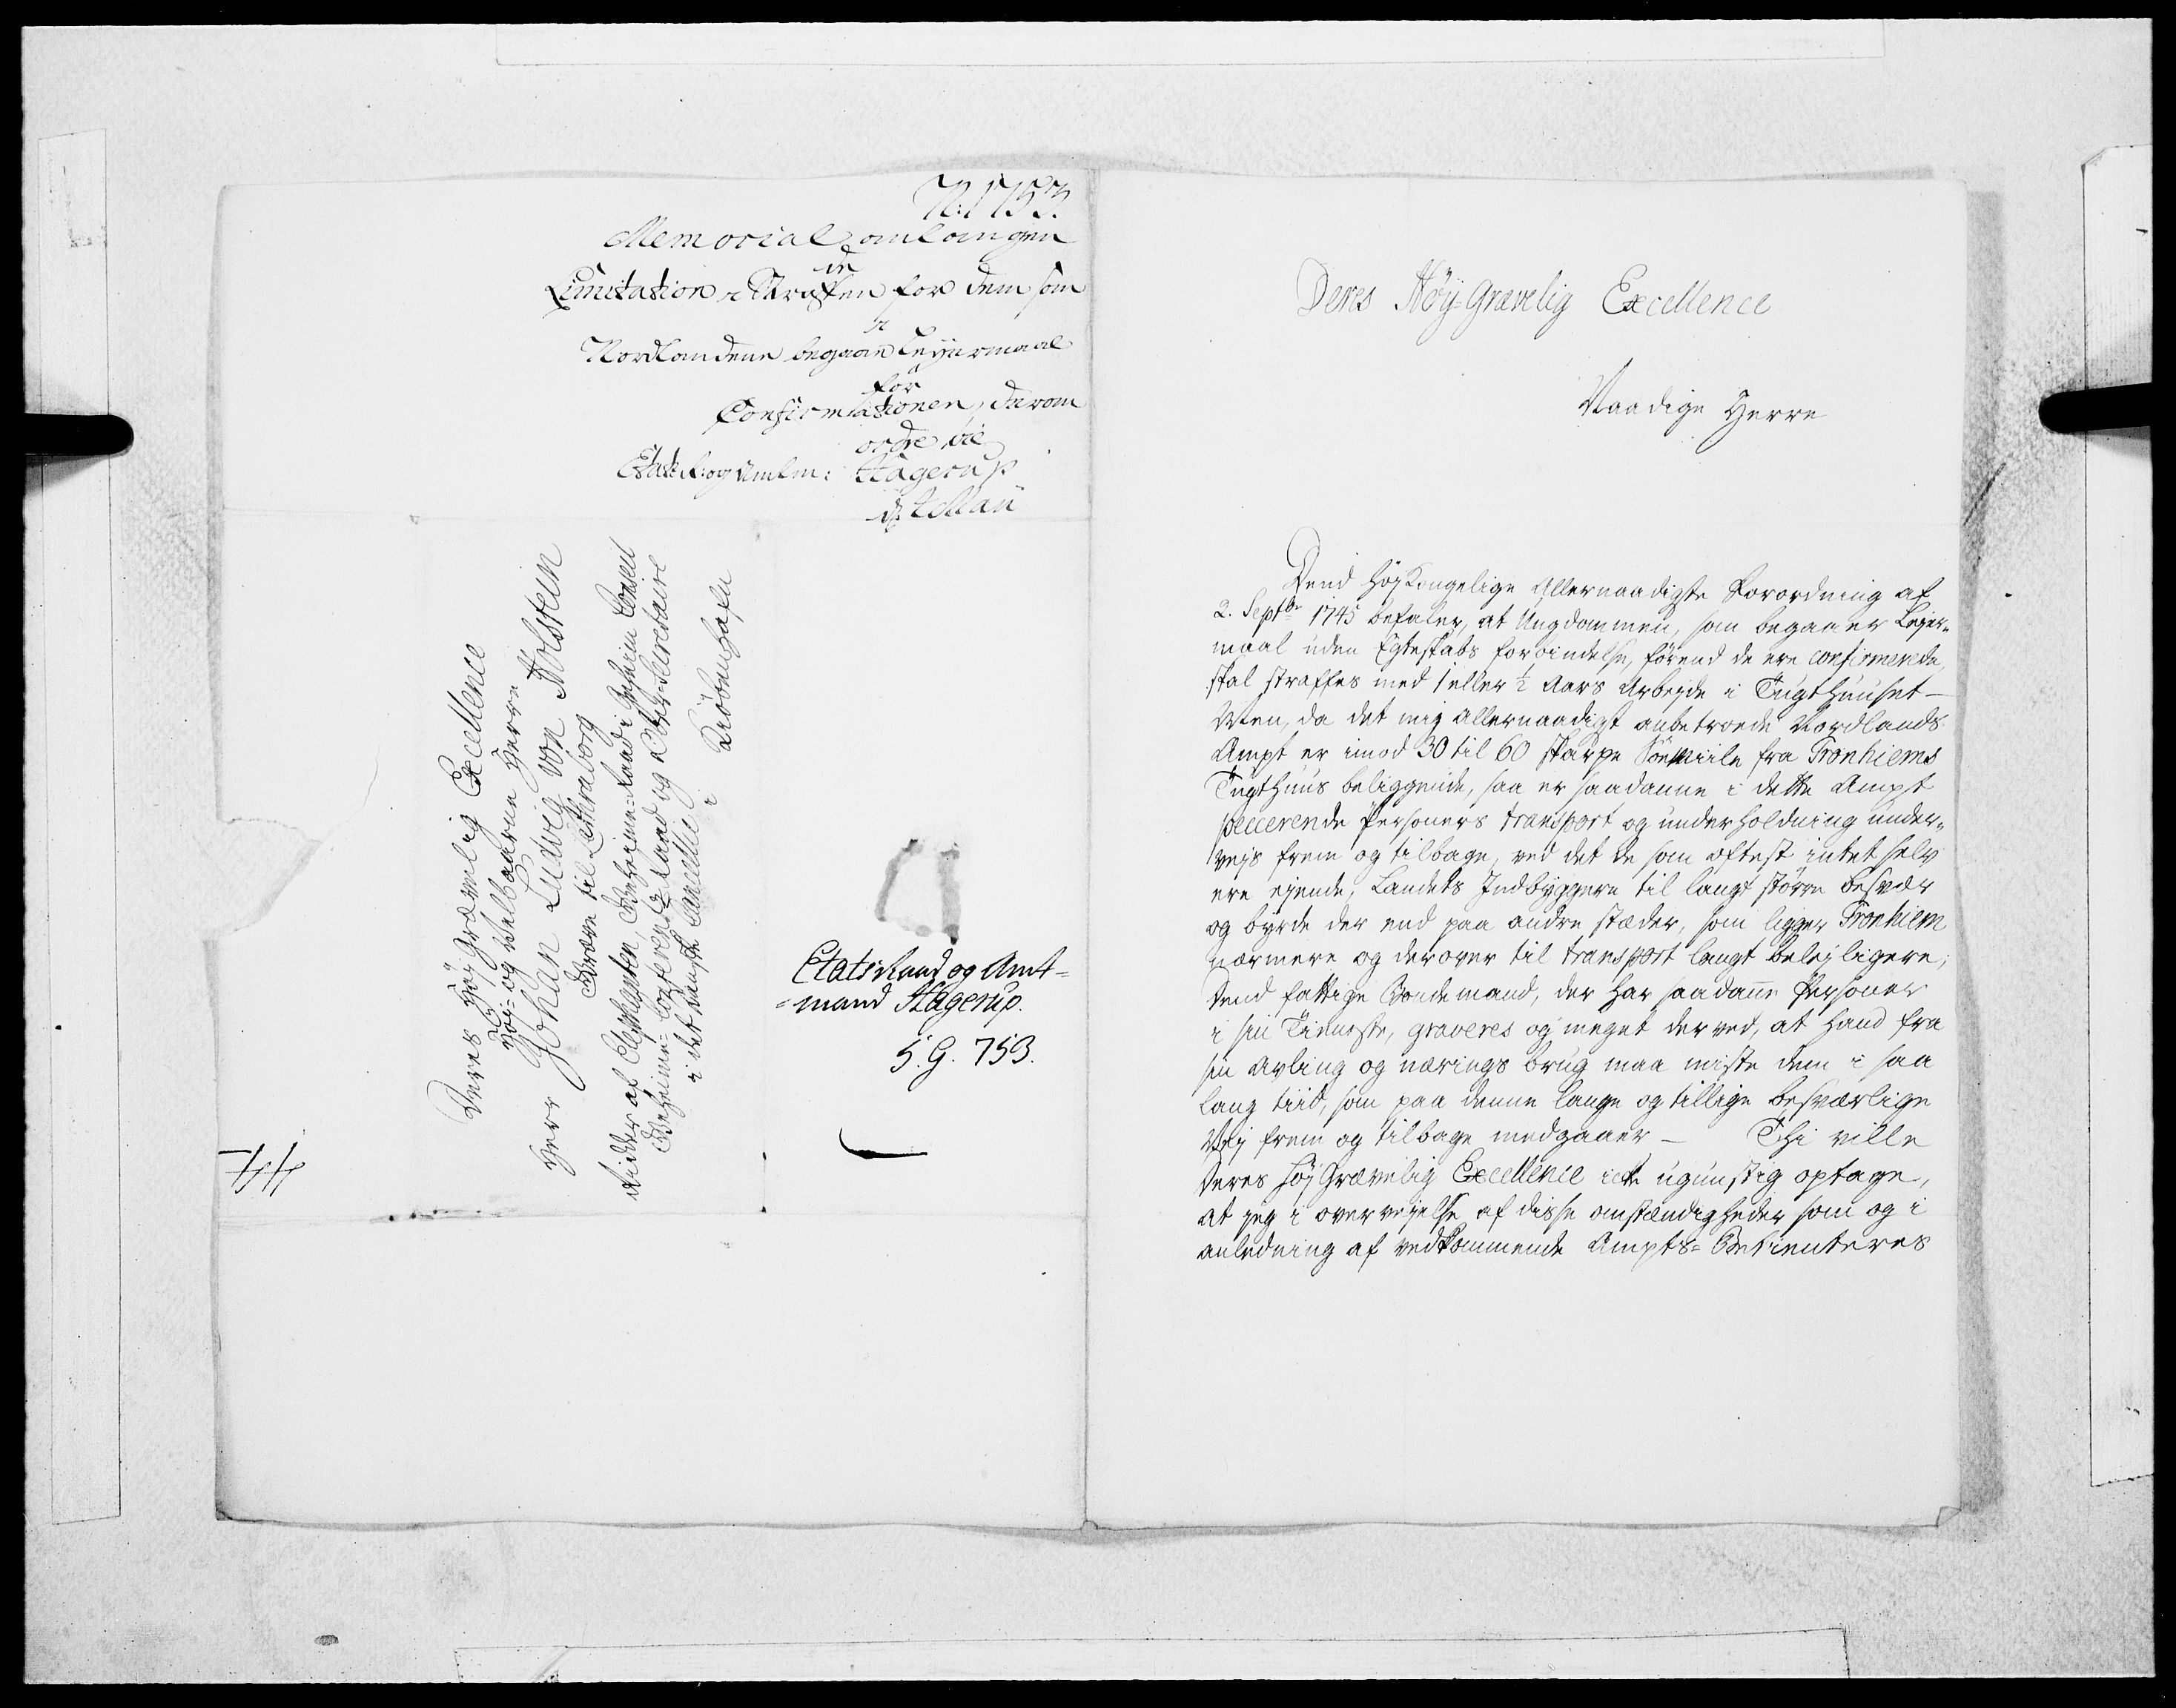 N: 1753
Memorial anlangende
Limitation i Straffen for dem som
i
Nordlandene begaae Leyermaal
för
Confirmationen, derom
ordre til
Etatsr: og Amtm: Hagerup
d: 4 Maii
Deres Höj Grævelig Excellence
Höj- og Velbaarne Herre
Herr Johan Ludvig von Holstein
Greve til Lethraborg
Ridder af Elephanten, Geheime-Raad i Geheim Conseil
Geheime- Raad og Ober-Secretaire
i det danske Cancellie
i Kiöbenhafn
Etats Raad og Amt-
-mand Hagerup.
5. G. 753.
44
Deres Höy-Grævelig Excellence
Naadige Herre
Dend Höj Kongelige Allernaadigste Forordning af
2. Septbr 1745 befaler, at Ungdommen, som begaaer Lejer-
maal uden Egteskabs forbindelse, förend de ere confirmerede,
skal straffes med 1 eller ½ Aars Arbejde i Tugthuuset -
Men, da det mig allernaadigst anbetroede Nordlands
Ampt er imod 30 til 60 skarpe Söe Miile fra Tronhiems
Tugthuus beliggende, saa er saadanne i dette Ampt
peccerende Personers transport og underholdning under-
vejs frem og tilbage, ved det de som oftest intet selv
ere ejende, Landets Indbyggere til langt större besvær
og byrde der end paa andre stæder, som ligger Tronhiem
nærmere og derover til transport langt belejligere;
Dend fattige Bondemand, der har saadanne Personer
i sin Tieneste, graveres og meget derved, at hand fra
sin avling og nærings brug maa miste dem i saa
lang tiid, som paa denne lange og tillige besværlige
Vej frem og tilbage medgaaer - Thi ville
Deres Höj Grævelig Excellence icke ugunstig optage,
at jeg i overvejelse af disse omstændigheder som og i
anledning af vedkommende Ampts- Betienteres